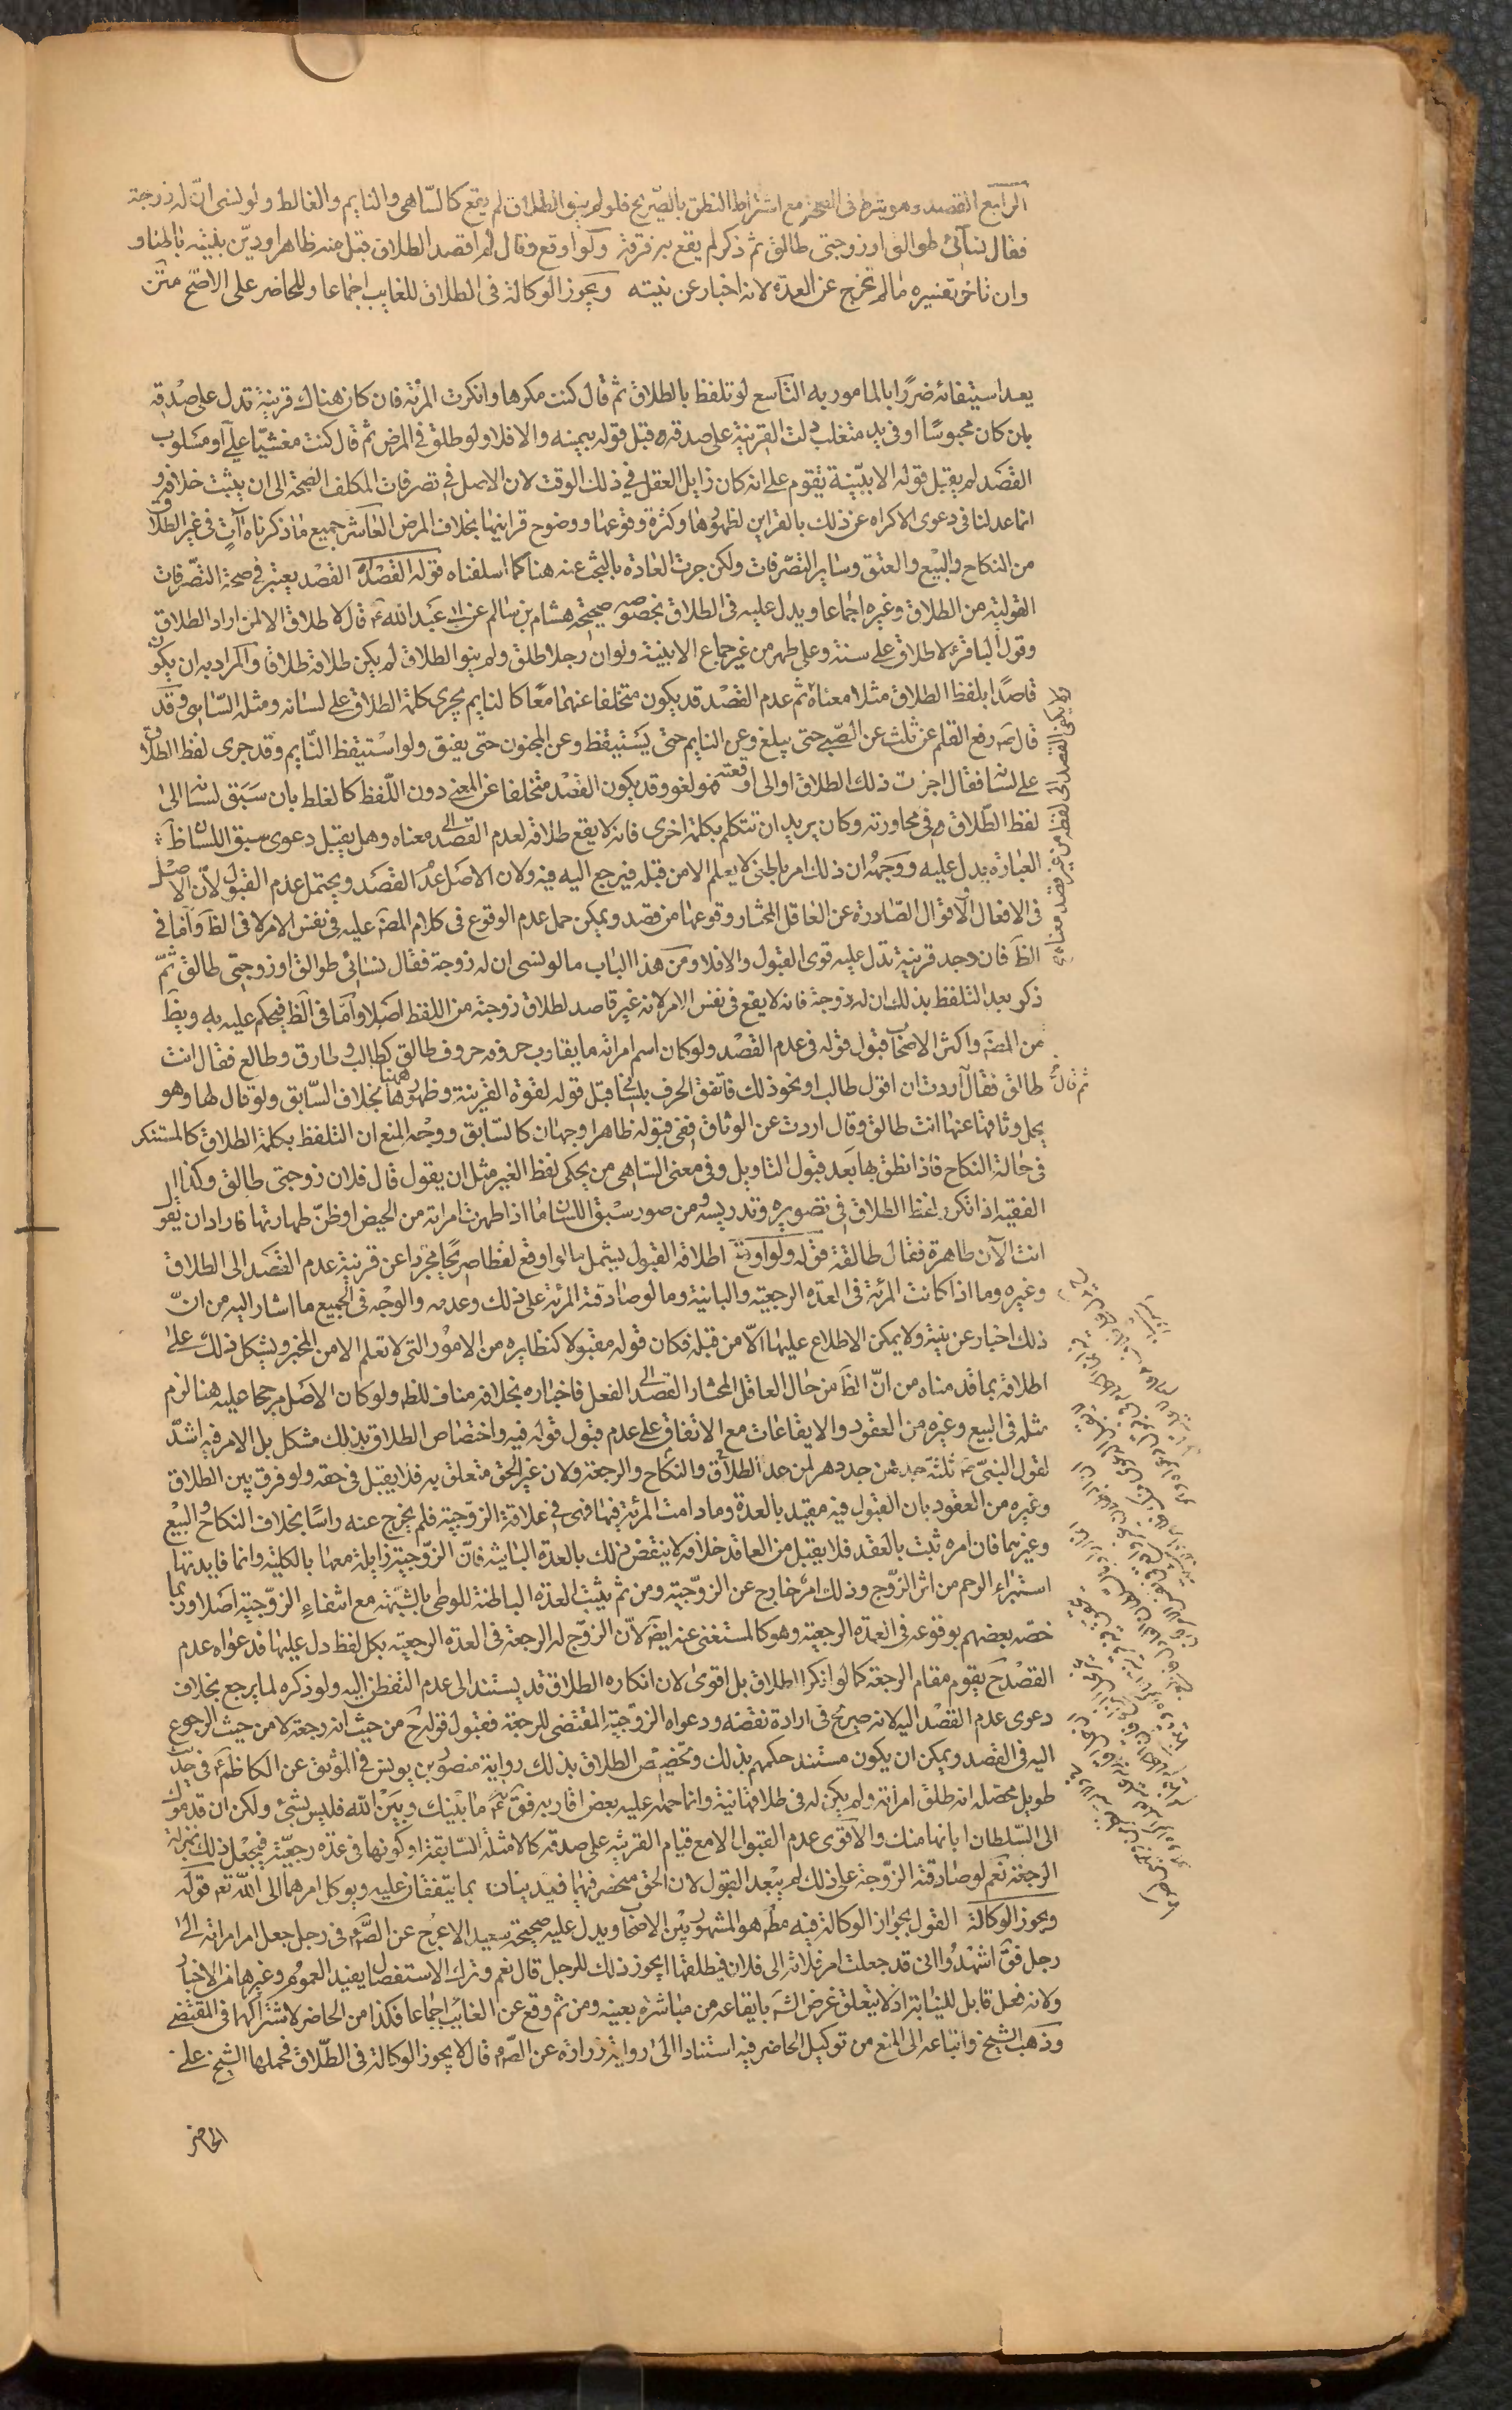 الرابع القصد وهو شرط فى الصحة مع اشتراط النطق بالصّريح فلو لم ينو الطلاق لم يقع كالسّاهى والنايم والغالط ولو نسى انّ له زوجة
فقال نسآئى طوالق او زوجتى طالق ثم ذكر لم يقع به فرقة ولو اوقع وقال لم اقصد الطلاق قبل منه ظاهرا وديّن بنيّته باطنا و
وان تاخر تفسيره ما لم تخرج عن العدّة لانه اخبار عن نيته ويجوز الوكالة فى الطلاق للغايب اجماعا وللحاضر على الاصّح متن
بعد استيفائه ضررًا بالمامور به التّاسع لو تلفظ بالطلاق ثم قال كنت مكرها وانكرت المرئة فان كان هناك قرينة تدل على صدقه
بان كان محبوسًا او فى يد متغلب دلت القرينة على صدقه قبل قوله بيمينه والا فلا ولو طلق فى المرض ثم قال كنت مغشيّا علىّ او مسلوب
القصد لم يقبل قوله الا ببيّنة تقوم على انه كان زايل العقل فى ذلك الوقت لان الاصل فى تصرفات المكلف الصّحة الى ان يثبت خلافه و
انما عدلنا فى دعوى الاكراه عن ذلك بالقراين لظهورها وكثرة وقوعها ووضوح قراينها بخلاف المرض العاشر جميع ما ذكرناه آتٍ فى غير الطلاق
من النكاح والبيع والعتق وساير التصّرفات ولكن جرت العادة بالبحث عنه هنا كما اسلفناه قوله القصْد القصْد يعتبر فى صحة التصّرفات
القوليّه من الطلاق وغيره اجماعا ويدل عليه فى الطلاق بخصوصه صحيحة هشام بن سالم عن ابى عبد الله ع قال لا طلاق الا لمن اراد الطلاق
وقول الباقر ع لا طلاق على سنة وعلى طهر من غير جماع الا ببيّنة ولو ان رجلا طلق ولم ينو الطلاق لم يكن طلاقه طلاقا والمراد به ان يكون
قاصدًا بلفظ الطلاق مثلا معناه ثم عدم القصْد قد يكون متخلفا عنهما معًا كالنايم يجرى كلمة الطلاق على لسانه ومثله السّاهى وقد
قال ص رفع القلم عن ثلث عن الصّبى حتى يبلغ وعن النايم حتى يستيقظ وعن المجنون حتى يفيق ولو استيقظ النّايم وقد جرى لفظ الطلاق
على لسانه فقال اجزت ذلك الطلاق او اوقعته فهو لغو وقد يكون القصْد متخلفا عن المعنى دون اللّفظ كالغلط بان سَبَق لسانه الى
لفظ الطّلاق فى محاورته وكان يريد ان تتكلم بكلمة اخرى فانه لا يقع طلاقه لعدم القصد الى معناه وهل يقبل دعوى سبق اللسان ظاهر
العبارة يدل عليه ووجهه ان ذلك امر باطنى لا يعلم الا من قبله فيرجع اليه فيه ولان الاصل عدم القصَد ويحتمل عدم القبول لانّ الاصْل
فى الافعال والاقوال الصّادرة عن العاقل المختار وقوعها من قصد ويمكن حمل عدم الوقوع فى كلام المصَ عليه فى نفس الامر لا فى الظَ وامّا فى
الظَ فان وجد قرينة تدل عليه قوى القبول والا فلا ومن هذا الباب ما لو نسى ان له زوجة فقال نسائى طوالق او زوجتى طالق ثمّ
ذكر بعد التلفظ بذلك ان له زوجة فانه لا يقع فى نفس الامر لانه غير قاصد لطلاق زوجته من اللفظ اصلا وامّا فى الظَ فيحكم عليه به ويظَ
من المصَ واكثر الاصحاب قبول قوله فى عدم القصْد ولو كان اسم امراته ما يقارب حروفه حروف طالق كطالب وطارق وطالع فقال انت
طالق فقال اردت ان اقول طالب او نحو ذلك فاتفق الحرف بلسانى قبل قوله لقوة القرينة وظهورها هنا بخلاف السّابق ولو قال لها وهو
يحل وثاقها عنها انت طالق وقال اردت عن الوثاق ففى قبوله ظاهرا وجهان كالسّابق ووجْه المنع ان التلفظ بكلمة الطلاق كالمستنكر
فى حالة النكاح فاذا نطق بها بَعد قبول التاويل وفى معنى السّاهى من يحكى لفظ الغير مثل ان يقول قال فلان زوجتى طالق وكذا
الفقيه اذا تكرر لفظ الطلاق فى تصويره وتدريسه ومن صور سبْق اللسان ما اذا طهرت امراته من الحيض او ظنّ طهارتها فاراد ان يقول
انت الآن طاهرة فقال طالقة قوله ولو اوقع اطلاقه القبول يشمل ما لو اوقع لفظا صريحًا مجرّدا عن قرينة عدم القصَد الى الطلاق
وغيره وما اذا كانت المرئة فى العدة الرجعيّه والباينة وما لو صادقته المرئة على ذلك وعدمه والوجْه فى الجميع ما اشار اليه من انّ
ذلك اخبار عن نيته ولا يمكن الاطلاع عليها الّا من قبله فكان قوله مقبولا كنظايره من الامور التى لا تعلم الا من المخبر ويشكل ذلك على
اطلاقه بما قدمناه من انّ الظَ من حال العاقل المختار القصد الى الفعل فاخباره بخلافه مناف للظَ ولو كان الاصل مرجحا عليه هنا لزم
مثله فى البيع وغيره من العقود والايقاعات مع الاتفاق على عدم قبول قوله فيه واختصاص الطلاق بذلك مشكل بل الامر فيه اشدّ
لقول النبىّ ص ثلثة جدهن جد وهزلهن جد الطلاق والنكاح والرجعة ولان غير الحق متعلق به فلا يقبل فى حقه ولو فرق بين الطلاق
وغيره من العقود بان القبول فيه مقيد بالعدة وما دامت المرئة فيها فهى فى علاقة الزوّجية فلم يخرج عنه راسًا بخلاف النكاح والبيع
وغيرهما فان امره ثبت بالعقد فلا يقبل من العاقد خلافه لا ينتقض ذلك بالعدة الباينة فانّ الزوّجية زايلة معها بالكلية وانما فايدتها
استبراء الرحم من اثر الزوّج وذلك امر خارج عن الزوّجية ومن ثم يثبت العدّة الباطنة للوطى بالشبهة مع انتفاء الزوّجيّة اصلا وربما
خصّه بعضهم بوقوعه فى العدة الرجعيّه وهو كالمستغنى عنه ايضَ لانّ الزوّج له الرجعة فى العدّة الرجعيّه بكل لفظ دل عليها فدعواه عدم
القصْد حَ يقوم مقام الرجعة كما لو انكر الطلاق بل اقوى لان انكاره الطلاق قد يستند الى عدم التفطن اليه ولو ذكره لما يرجع بخلاف
دعوى عدم القصْد اليه لانه صريح فى ارادة نقضه ودعواه الزوّجيّة المقتضى للرجعة فقبول قوله حَ من حيث انه رجعة لا من حيث الرجوع
اليه فى القصد ويمكن ان يكون مستند حكمهم بذلك وتخصيص الطلاق بذلك رواية منصور بن يونس فى الموثق عن الكاظم ع فى حديث
طويل محصله انه طلق امراته ولم يكن له فى طلاقها نية وانما حمله عليه بعض اقاربه فقَ ع ما بَينك وبيَن الله فليس بشئ ولكن ان قدموك
الى السّلطان ابانها منك والاقوى عدم القبول الا مع قيام القرينة على صدقه كالامثلة السّابقة او كونها فى عدّة رجعيّة فيجعل ذلك بمنزلة
الرجعة نعم لو صادقته الزوّجة على ذلك لم يبْعد القبول لان الحق منحصر فيهما فيدينان بما يتفقان عليه ويوكل امرهما الى الله تعَ قوله
ويجوز الوكالة القول بجواز الوكالة فيه مطَ هو المشهور بين الاصحاب ويدل عليه صحيحة سعيد الاعرج عن الصَّ فى رجل جعل امر امراته الى
رجل فقَ اشهدُوا انى قد جعلت امر فلانة الى فلان فيطلقها ايجوز ذلك للرجل قال نعم وترك الاستفصال يفيد العموم وغيرها من الاخبار
ولانه فعل قابل للنيابة اذ لا يتعلق غرض الشَ بايقاعه من مباشرة بعينه ومن ثم وقع عن الغائب اجماعا فكذا من الحاضر لاشتراكهما فى المقتضى
وذهب الشيخ واتباعه الى المنع من توكيل الحاضر فيه استنادا الى رواية زرارة عن الصَّ قال لا يجوز الوكالة فى الطّلاق فحملها الشيخ على
الحاضر
لا يكفى القصد الى لفظه من غير قصد معناه
ثم قال